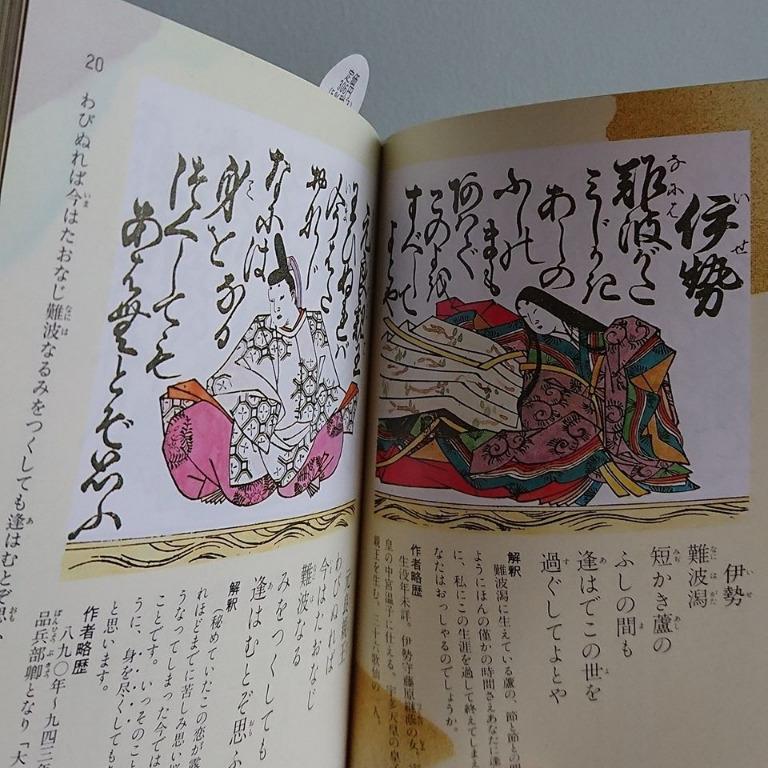 伊勢
難波がた
みじかき
あしの
ふしの
まも
あはで
このよを
すぐして
よとや
伊勢
難波潟
短かき蘆の
ふしの間も
逢はでこの世を
過ぐしてよとや
解釈
難波潟に生えている蘆の、節と節との
ようにほんの僅かの時間さえあなたに
に、私にこの生涯を過して終えてしま
なたはおっしゃるのでしょうか。
作者略歴
生没年未詳。伊勢守藤原継蔭の女。
皇の中宮温子に仕える。宇多天皇の皇子
親王を生む。三十六歌仙の一人。
元良親王
わびぬれば
今はた
おなじ
なには
なる
身を
つくしても
あはむとぞ思ふ
元良親王
わびぬれば
今はたおなじ
難波なる
みをつくしても
逢はむとぞ思ふ
解釈
(秘めていたこの恋が露
れほどまでに苦しみ思い
うなってしまった今では
ことです。いっそのこと
うに、身を尽くしても
と思います。
作者略歴
八九〇年〜九四三年
品兵部卿となり「大
20 わびぬれば今はたおなじ難波なるみをつくしても逢はむとぞ思ふ